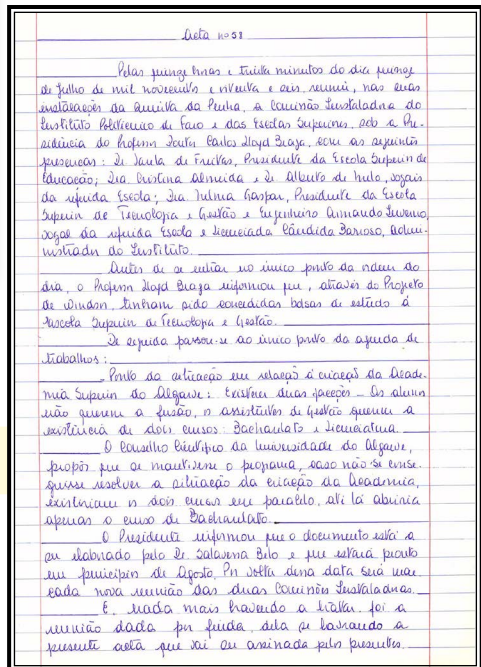 Acta nº 58
Pelas quinze horas e trinta minutos do dia quinze
de Julho de mil novecentos e oitenta e seis, reuniu, nas suas
instalações da Quinta da Penha, a Comissão Instaladora do
Instituto Politécnico de Faro e das Escolas Superiores, sob a Pre-
sidência do Professor Doutor Carlos Lloyd Braga, com as seguintes
presenças: Dr. Paula de Freitas, Presidente da Escola Superior de
Educação; Dra Cristina Almeida e Dr. Alberto de Melo, vogais
da referida Escola; Dra Julma Gaspar, Presidente da Escola
Superior de Tecnologia e Gestão e Engenheiro Armando Inverno,
vogal da referida Escola e licenciada Cândida Barroso, admi-
nistrador do Instituto.
Antes de se entrar no único ponto da ordem do
dia, o Professor Lloyd Braga informou que, através do Projecto
de Windsor, tinham sido concedidas bolsas de estudo à
Escola Superior de Tecnologia e Gestão.
De seguida passou-se ao único ponto da agenda de
trabalhos:
Ponto da situação em relação à criação da Acade-
mia Superior do Algarve: Existem duas facções — Os alunos
não querem a fusão, os assistentes de Gestão querem a
existência de dois cursos: Bacharelato e Licenciatura.
O Conselho Científico da Universidade do Algarve,
propôs que se mantivesse o programa, caso não se conse-
guisse resolver a situação da criação da Academia,
existiriam os dois cursos em paralelo, até lá abriria
apenas o curso de Bacharelato.
O Presidente informou que o documento está a
ser elaborado pelo Dr. Salavena Belo e que estará pronto
em princípios de Agosto. Por volta dessa data será mar-
cada nova reunião das duas Comissões Instaladoras.
E, nada mais havendo a tratar, foi a
reunião dada por finda, dela se lavrando a
presente acta que vai ser assinada pelos presentes.